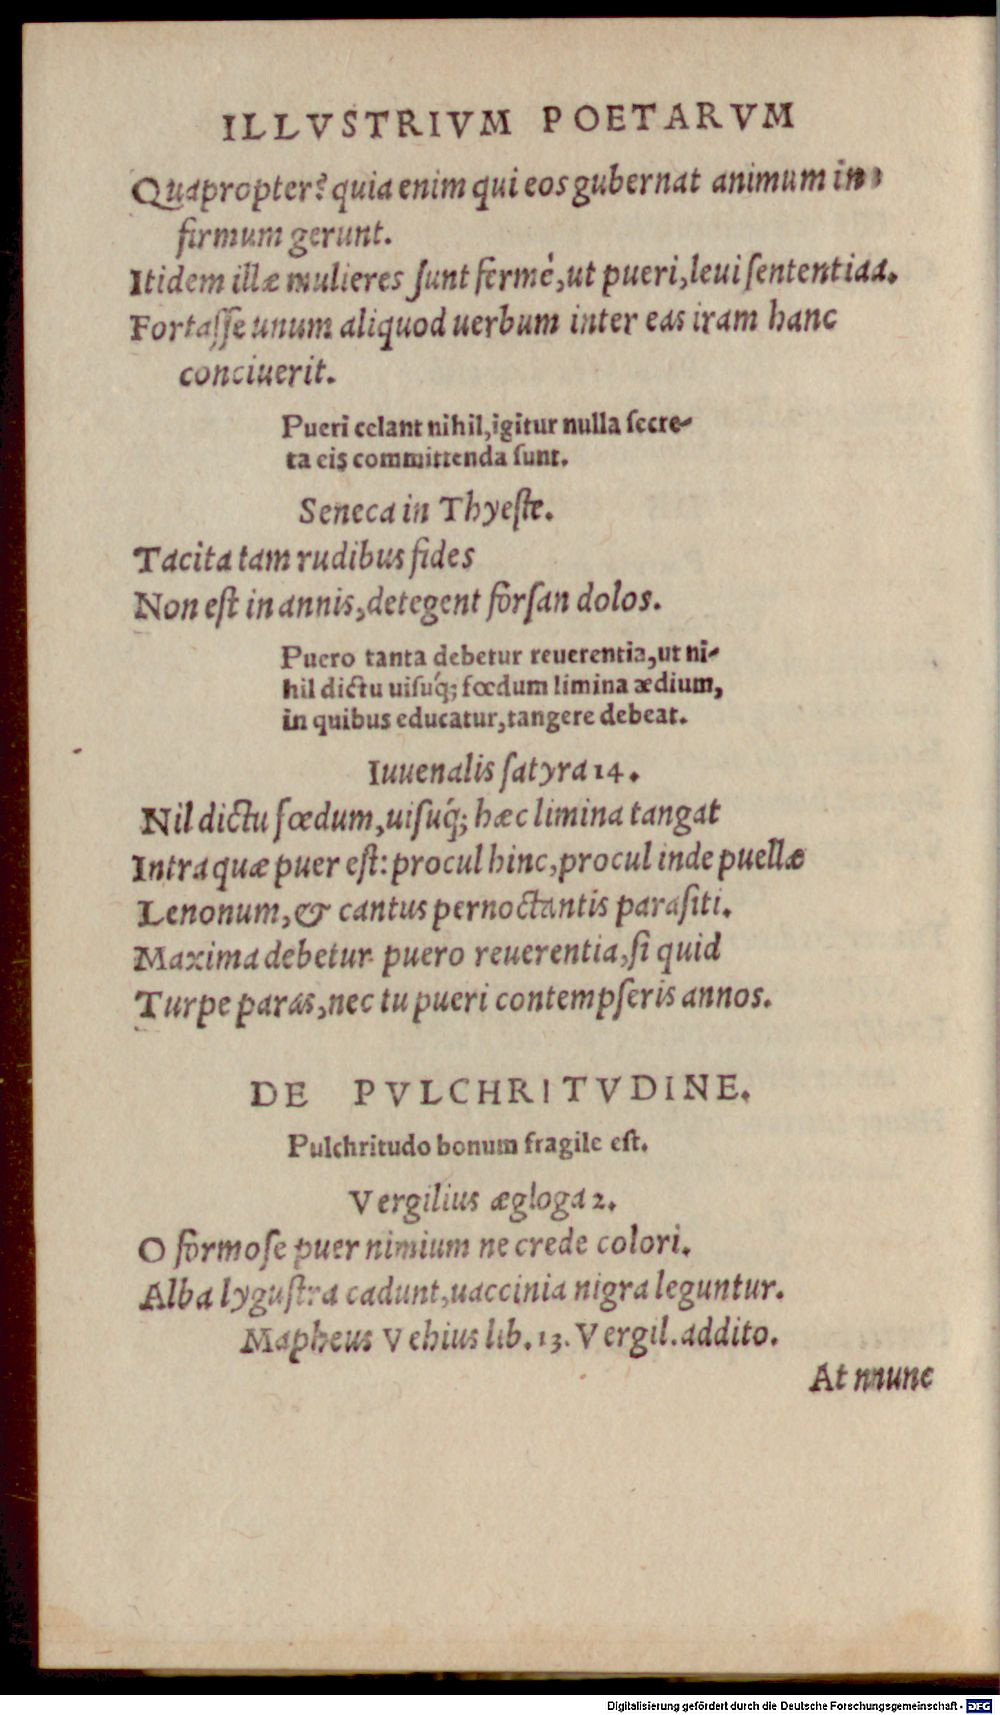 ILLVSTRIVM POETARVM
Quapropter? quia enim qui eos gubernat animum in-
firmum gerunt.
Itidem illæ mulieres ſunt fermé, ut pueri, leui ſententiaa.
Fortaſſe unum aliquod uerbum inter eas iram hanc
conciuerit.
Pueri celant nihil, igitur nulla ſecre-
ta eis committenda ſunt.
Seneca in Thyeſte.
Tacita tam rudibus fides
Non eſt in annis, detegent forſan dolos.
Puero tanta debetur reuerentia, ut ni-
hil dictu uiſuq́; fœdum limina ædium,
in quibus educatur, tangere debeat.
Iuuenalis ſatyra 14.
Nil dictu fœdum, uiſuq́; hæc limina tangat
Intra quæ puer eſt: procul hinc, procul inde puellæ
Lenonum, & cantus pernoctantis paraſiti.
Maxima debetur puero reuerentia, ſi quid
Turpe paras, nec tu pueri contempſeris annos.
DE PVLCHRITVDINE.
Pulchritudo bonum fragile eſt.
Vergilius ægloga 2.
O formoſe puer nimium ne crede colori.
Alba lyguſtra cadunt, uaccinia nigra leguntur.
Mapheus Vehius lib. 13. Vergil. addito.
At nnunc
Digitalisierung gefördert durch die Deutsche Forschungsgemeinschaft - DFG